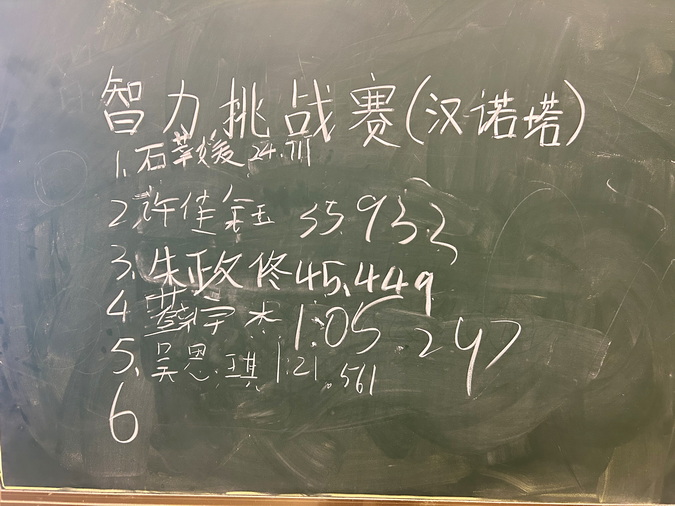 智力挑战赛(汉诺塔)
1.石莘媛 24.711
2 许佳钰 35.933
3.朱政修 45.449
4 蔡宇杰 1:05.247
5.吴恩琪 1:21.561
6